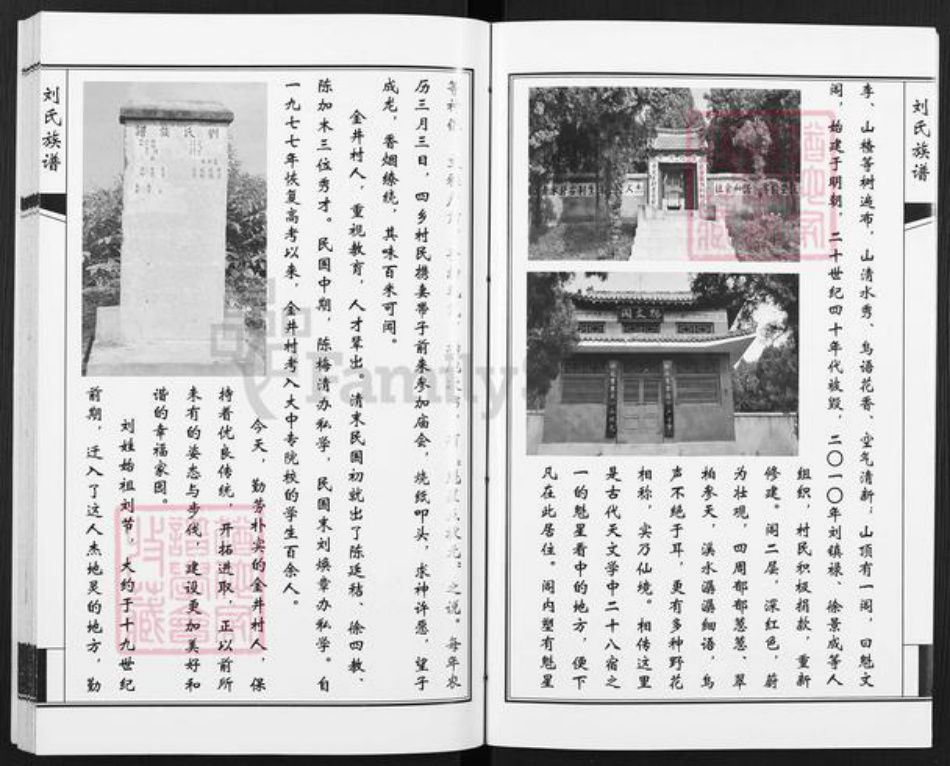 刘氏族谱
李、山楂等树遍布，山清水秀、鸟语花香、空气清新；山顶有一阁，曰魁文
阁，始建于明朝，二十世纪四十年代被毁，二〇一〇年刘镇禄、徐景成等人
组织，村民积极捐款，重新
修建。阁二层，深红色，蔚
为壮观，四周郁郁葱葱、翠
柏参天，溪水潺潺细语，鸟
声不绝于耳，更有多种野花
相称，实乃仙境。相传这里
是古代天文学中二十八宿之
一的魁星看中的地方，便下
凡在此居住。阁内塑有魁星
之说。每年农
历三月三日，四乡村民携妻带子前来参加庙会，烧纸叩头，求神许愿，望子
成龙，香烟缭绕，其味百米可闻。
金井村人，重视教育，人才辈出。清末民国初就出了陈延秸、徐四教、
陈加木三位秀才。民国中期，陈梅清办私学，民国末刘焕章办私学。自
一九七七年恢复高考以来，金井村考入大中专院校的学生百余人。
今天，勤劳朴实的金井村人，保
持着优良传统，开拓进取，正以前所
未有的姿态与步伐，建设更加美好和
谐的幸福家园。
刘姓始祖刘节，大约于十九世纪
前期，迁入了这人杰地灵的地方，勤
刘氏族谱
劉氏族譜
FamilyS